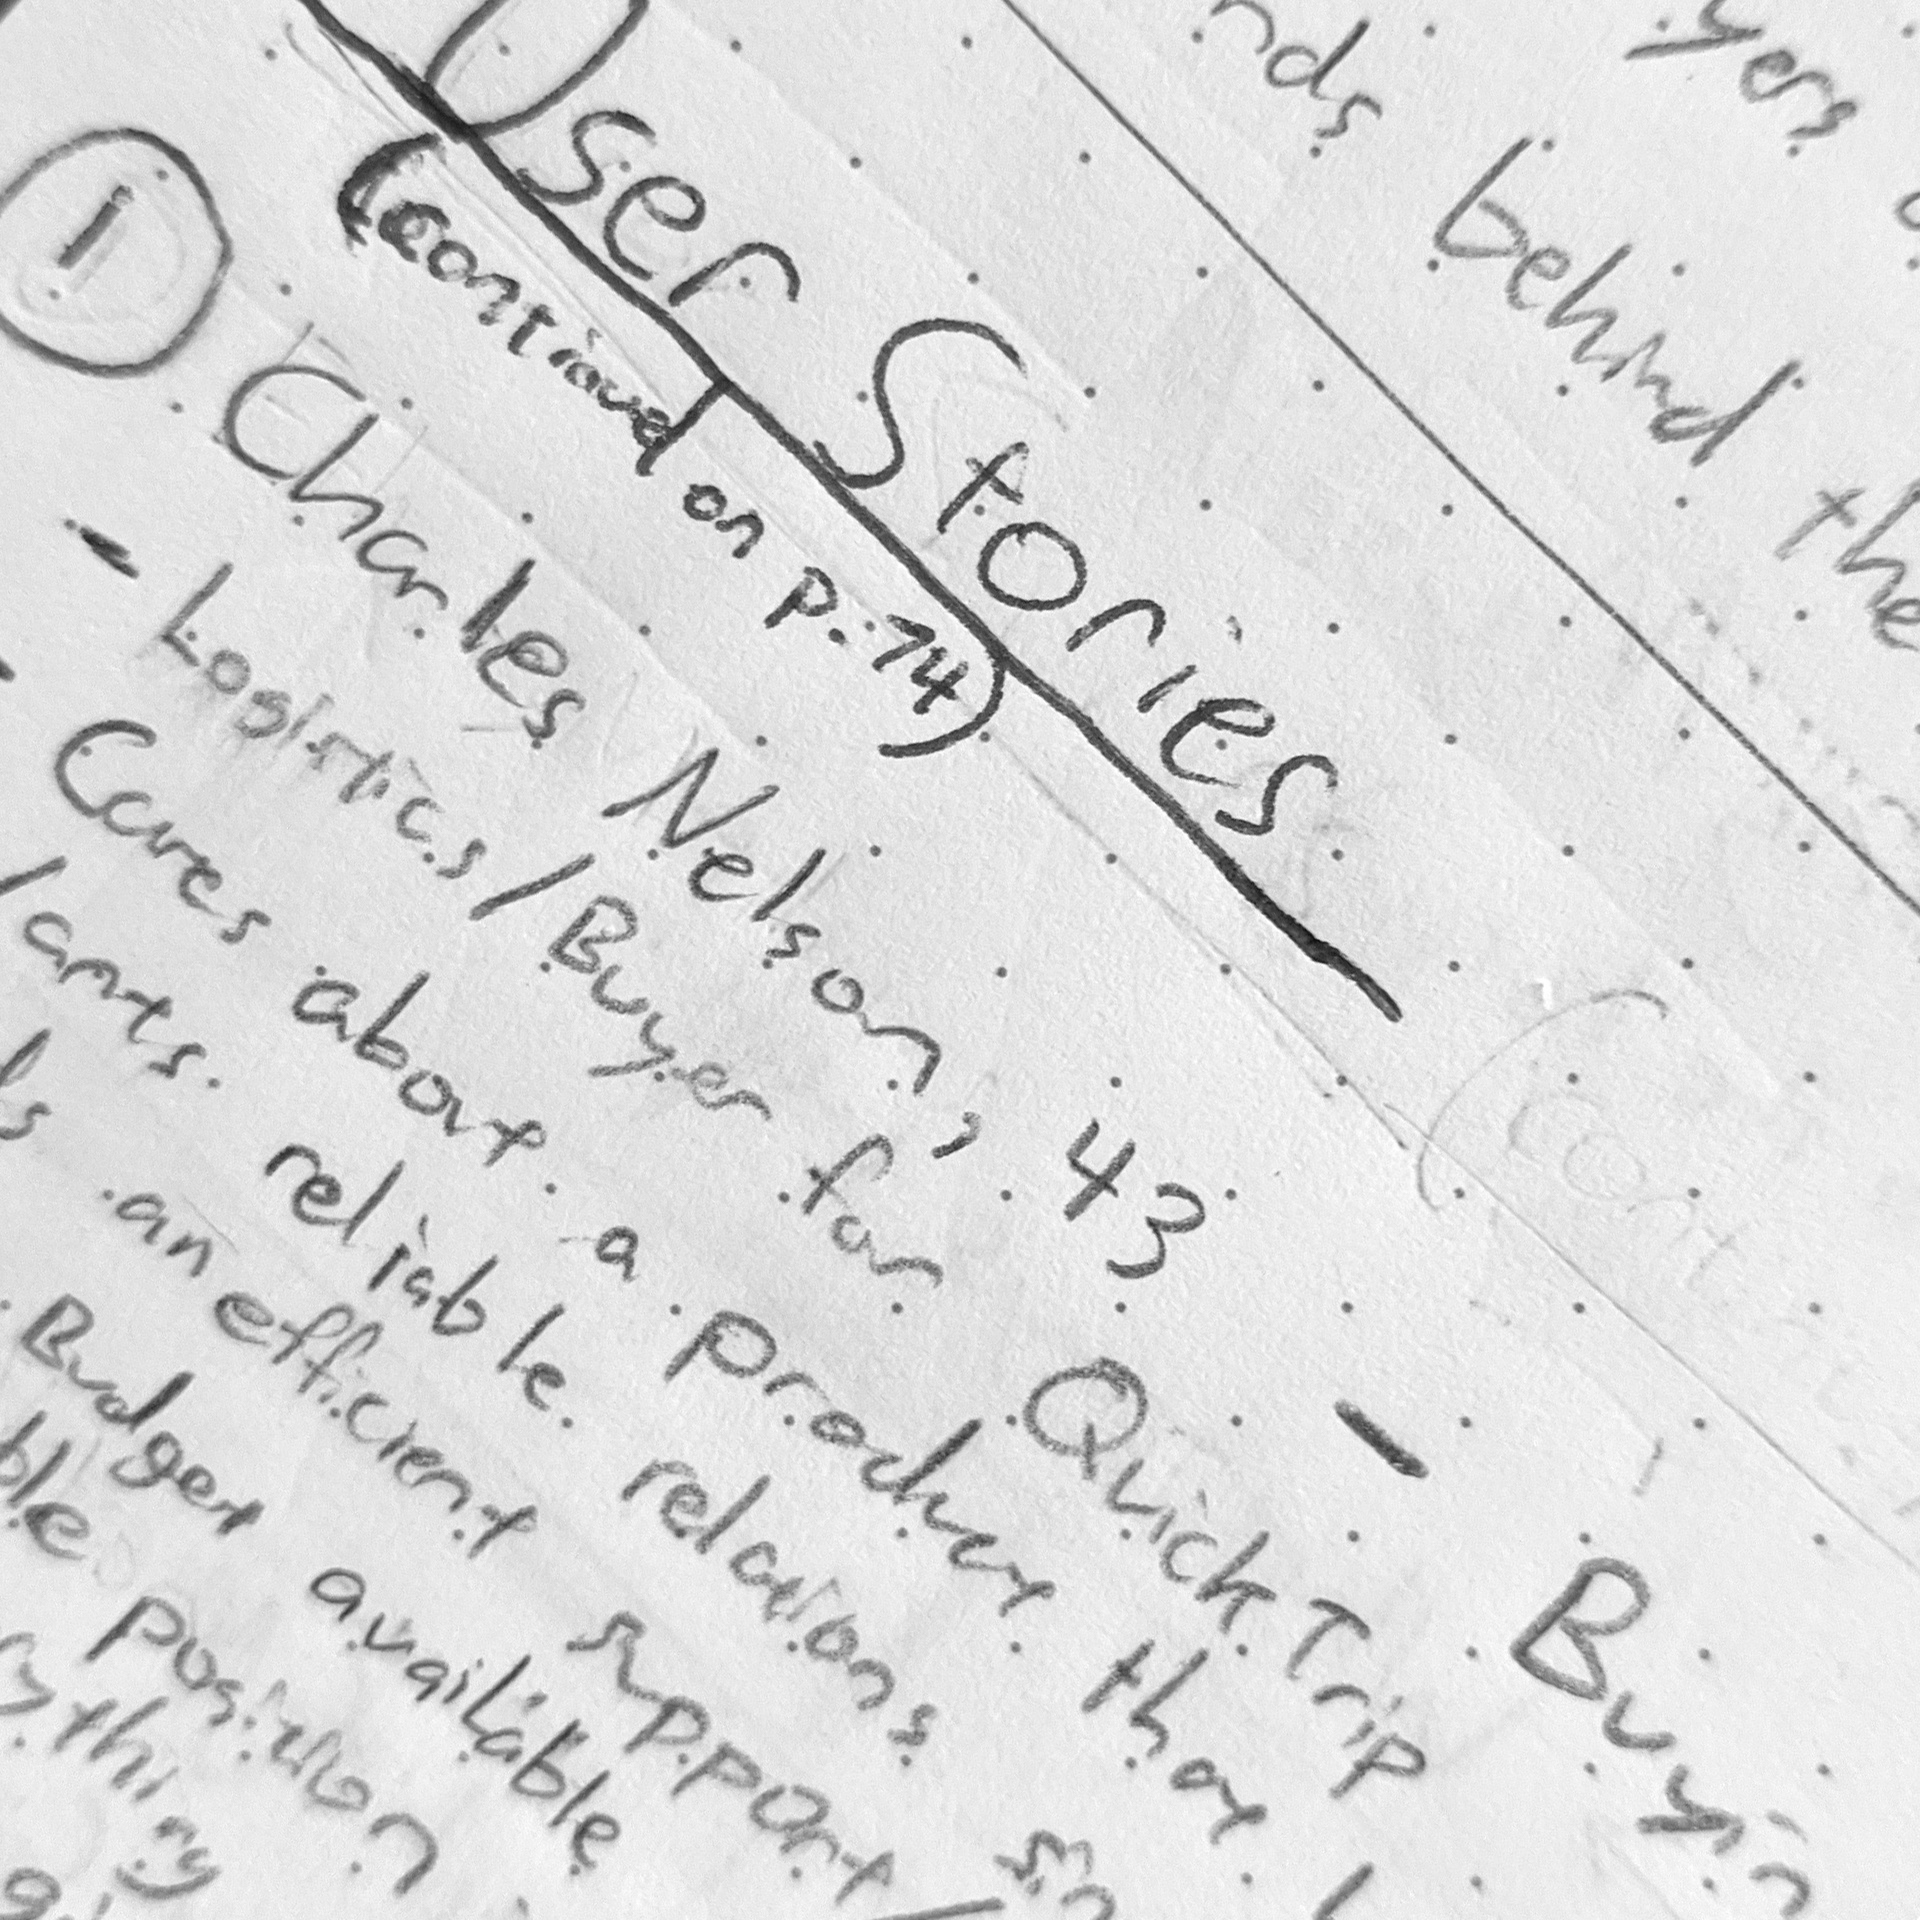 yers
behind the
User Stories
(continued on p. 74)
1 Charles Nelson, 43 - Buyin
- Logistics/Buyer for QuickTrip
Cares about a product that
reliable relations
an efficient support/
Budget available
position
thing